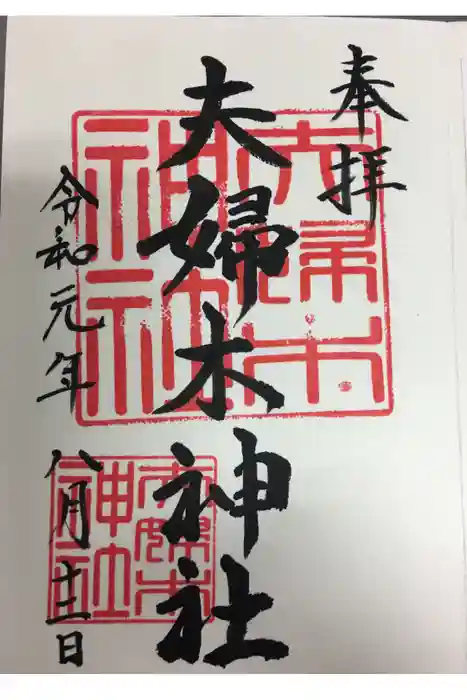 奉拝
夫婦木神社
令和元年
八月十三日
夫婦木
神社
夫婦木
神社